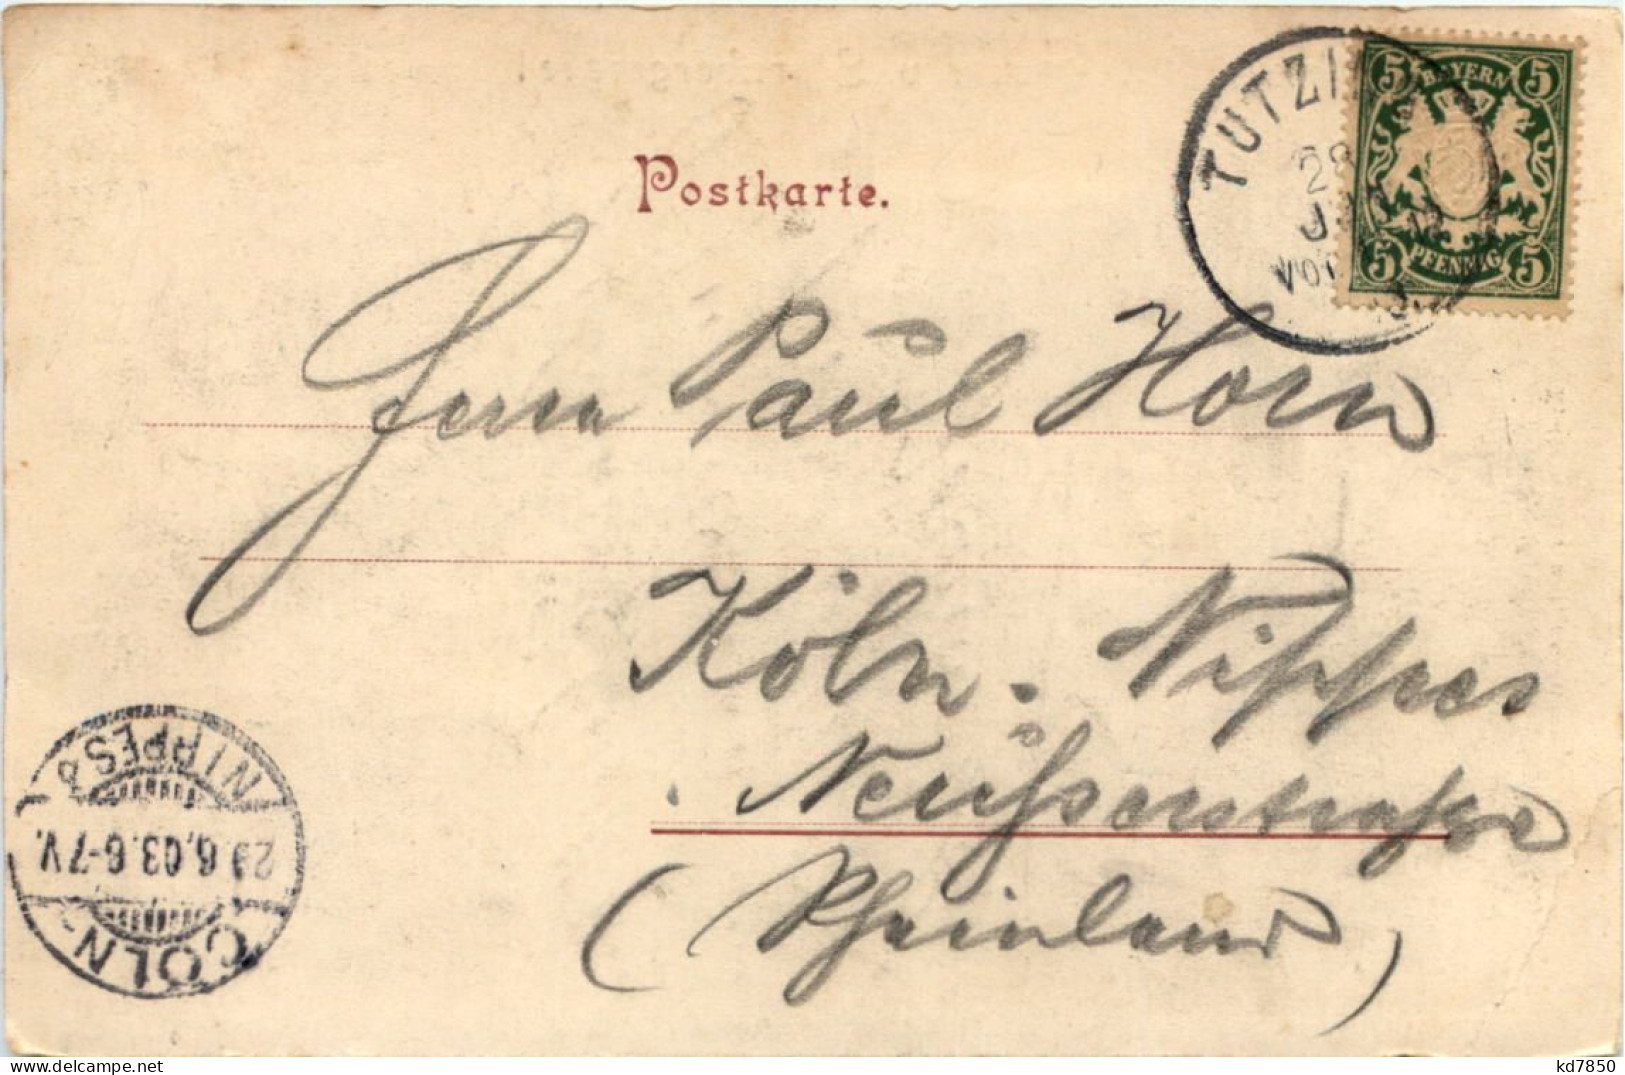 Postkarte.
TUTZI
28
VOR
5 BAYERN 5
5 PFENNIG 5
Herrn Paul Horn
Köln-Nippes
Neußerstraße
(Rheinland)
CÖLN-
NIPPES b
29 6.03.6-7V.
kd7850